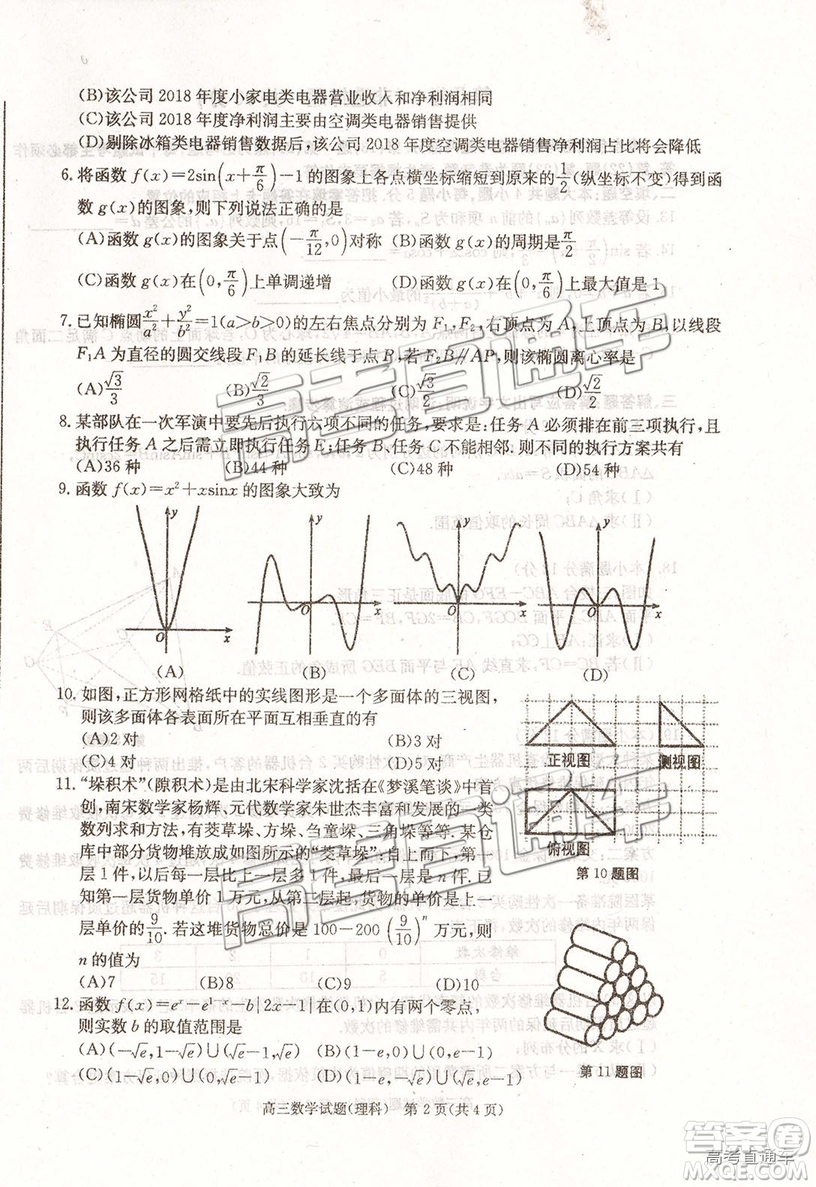 (B)该公司 2018 年度小家电类电器营业收入和净利润相同
(C)该公司 2018 年度净利润主要由空调类电器销售提供
(D)剔除冰箱类电器销售数据后,该公司 2018 年度空调类电器销售净利润占比将会降低
6. 将函数 f(x)=2sin(x+π/6)-1 的图象上各点横坐标缩短到原来的 1/2 (纵坐标不变)得到函
数 g(x)的图象,则下列说法正确的是
(A)函数 g(x)的图象关于点(-π/12,0)对称 (B)函数 g(x)的周期是 π/2
(C)函数 g(x)在(0,π/6)上单调递增 (D)函数 g(x)在(0,π/6)上最大值是 1
7. 已知椭圆 x²/a²+y²/b²=1(a>b>0)的左右焦点分别为 F₁,F₂,右顶点为 A,上顶点为 B,以线段
F₁A 为直径的圆交线段 F₁B 的延长线于点 P,若 F₂B∥AP,则该椭圆离心率是
(A)√3/3 (B)√2/3 (C)√3/2 (D)√2/2
8. 某部队在一次军演中要先后执行六项不同的任务,要求是:任务 A 必须排在前三项执行,且
执行任务 A 之后需立即执行任务 E;任务 B、任务 C 不能相邻. 则不同的执行方案共有
(A)36 种 (B)44 种 (C)48 种 (D)54 种
9. 函数 f(x)=x²+xsinx 的图象大致为
y y y y
O x O x O x O x
(A) (B) (C) (D)
10. 如图,正方形网格纸中的实线图形是一个多面体的三视图,
则该多面体各表面所在平面互相垂直的有
(A)2 对 (B)3 对
(C)4 对 (D)5 对
正视图 侧视图
俯视图
第 10 题图
11. “垛积术”(隙积术)是由北宋科学家沈括在《梦溪笔谈》中首
创,南宋数学家杨辉、元代数学家朱世杰丰富和发展的一类
数列求和方法,有茭草垛、方垛、刍童垛、三角垛等等. 某仓
库中部分货物堆放成如图所示的“茭草垛”:自上而下,第一
层 1 件,以后每一层比上一层多 1 件,最后一层是 n 件. 已
知第一层货物单价 1 万元,从第二层起,货物的单价是上一
层单价的 9/10. 若这堆货物总价是 100-200(9/10)ⁿ 万元,则
n 的值为
(A)7 (B)8 (C)9 (D)10
12. 函数 f(x)=eˣ-e¹⁻ˣ-b|2x-1|在(0,1)内有两个零点,
则实数 b 的取值范围是
(A)(-√e,1-√e)∪(√e-1,√e) (B)(1-e,0)∪(0,e-1)
(C)(1-√e,0)∪(0,√e-1) (D)(1-e,-√e)∪(√e,e-1)
第 11 题图
高三数学试题(理科) 第 2 页(共 4 页)
高考直通车
高考直通车
高考直通车
答案圈
MXQE.COM